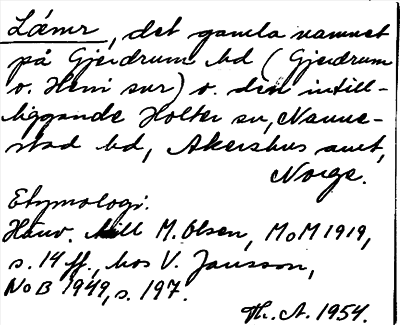 Læmr, det gamla namnet
på Gjerdrum bd (Gjerdrum
o. Heni snr) o. den intill-
liggande Holter sn, Nanne-
stad bd, Akershus amt,
Norge.
Etymologi.
Hänv. till M. Olsen, MoM 1919,
s. 14 ff., hos V. Jansson,
NoB 1949, s. 197.
Th. A. 1954.